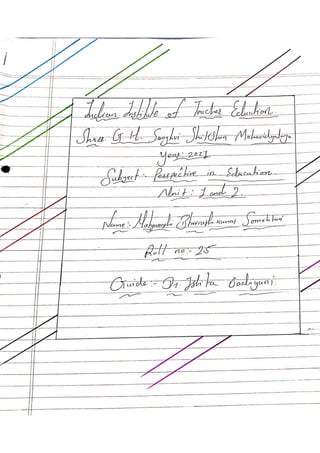 Indian Institute of Teacher Education
Shree G H. Sanghvi Shikshan Mahavidyalaya
Year: 2021
Subject:- Perspective in Education
Unit: 1 and 2.
Name:- Bhaveshkumar
Roll no:- 25
Guide:- Dr. Ishita